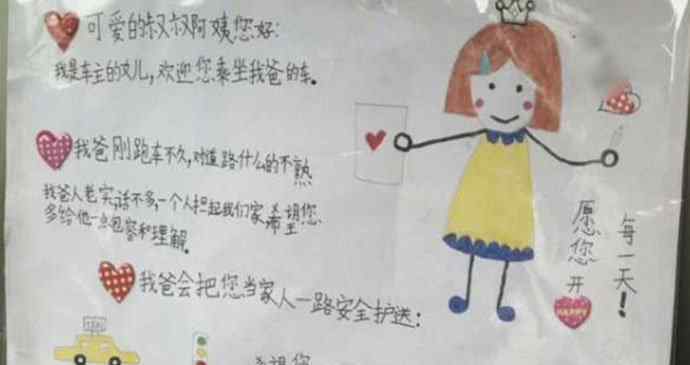 可爱的叔叔阿姨您好：
我是车主的女儿，欢迎您乘坐我爸的车。
我爸刚跑车不久，对道路什么的不熟
我爸人老实，话不多，一个人担起我们家希望您
多给他一点包容和理解。
我爸会把您当家人一路安全护送：
希望您
愿您
每一天！
开
HAPPY